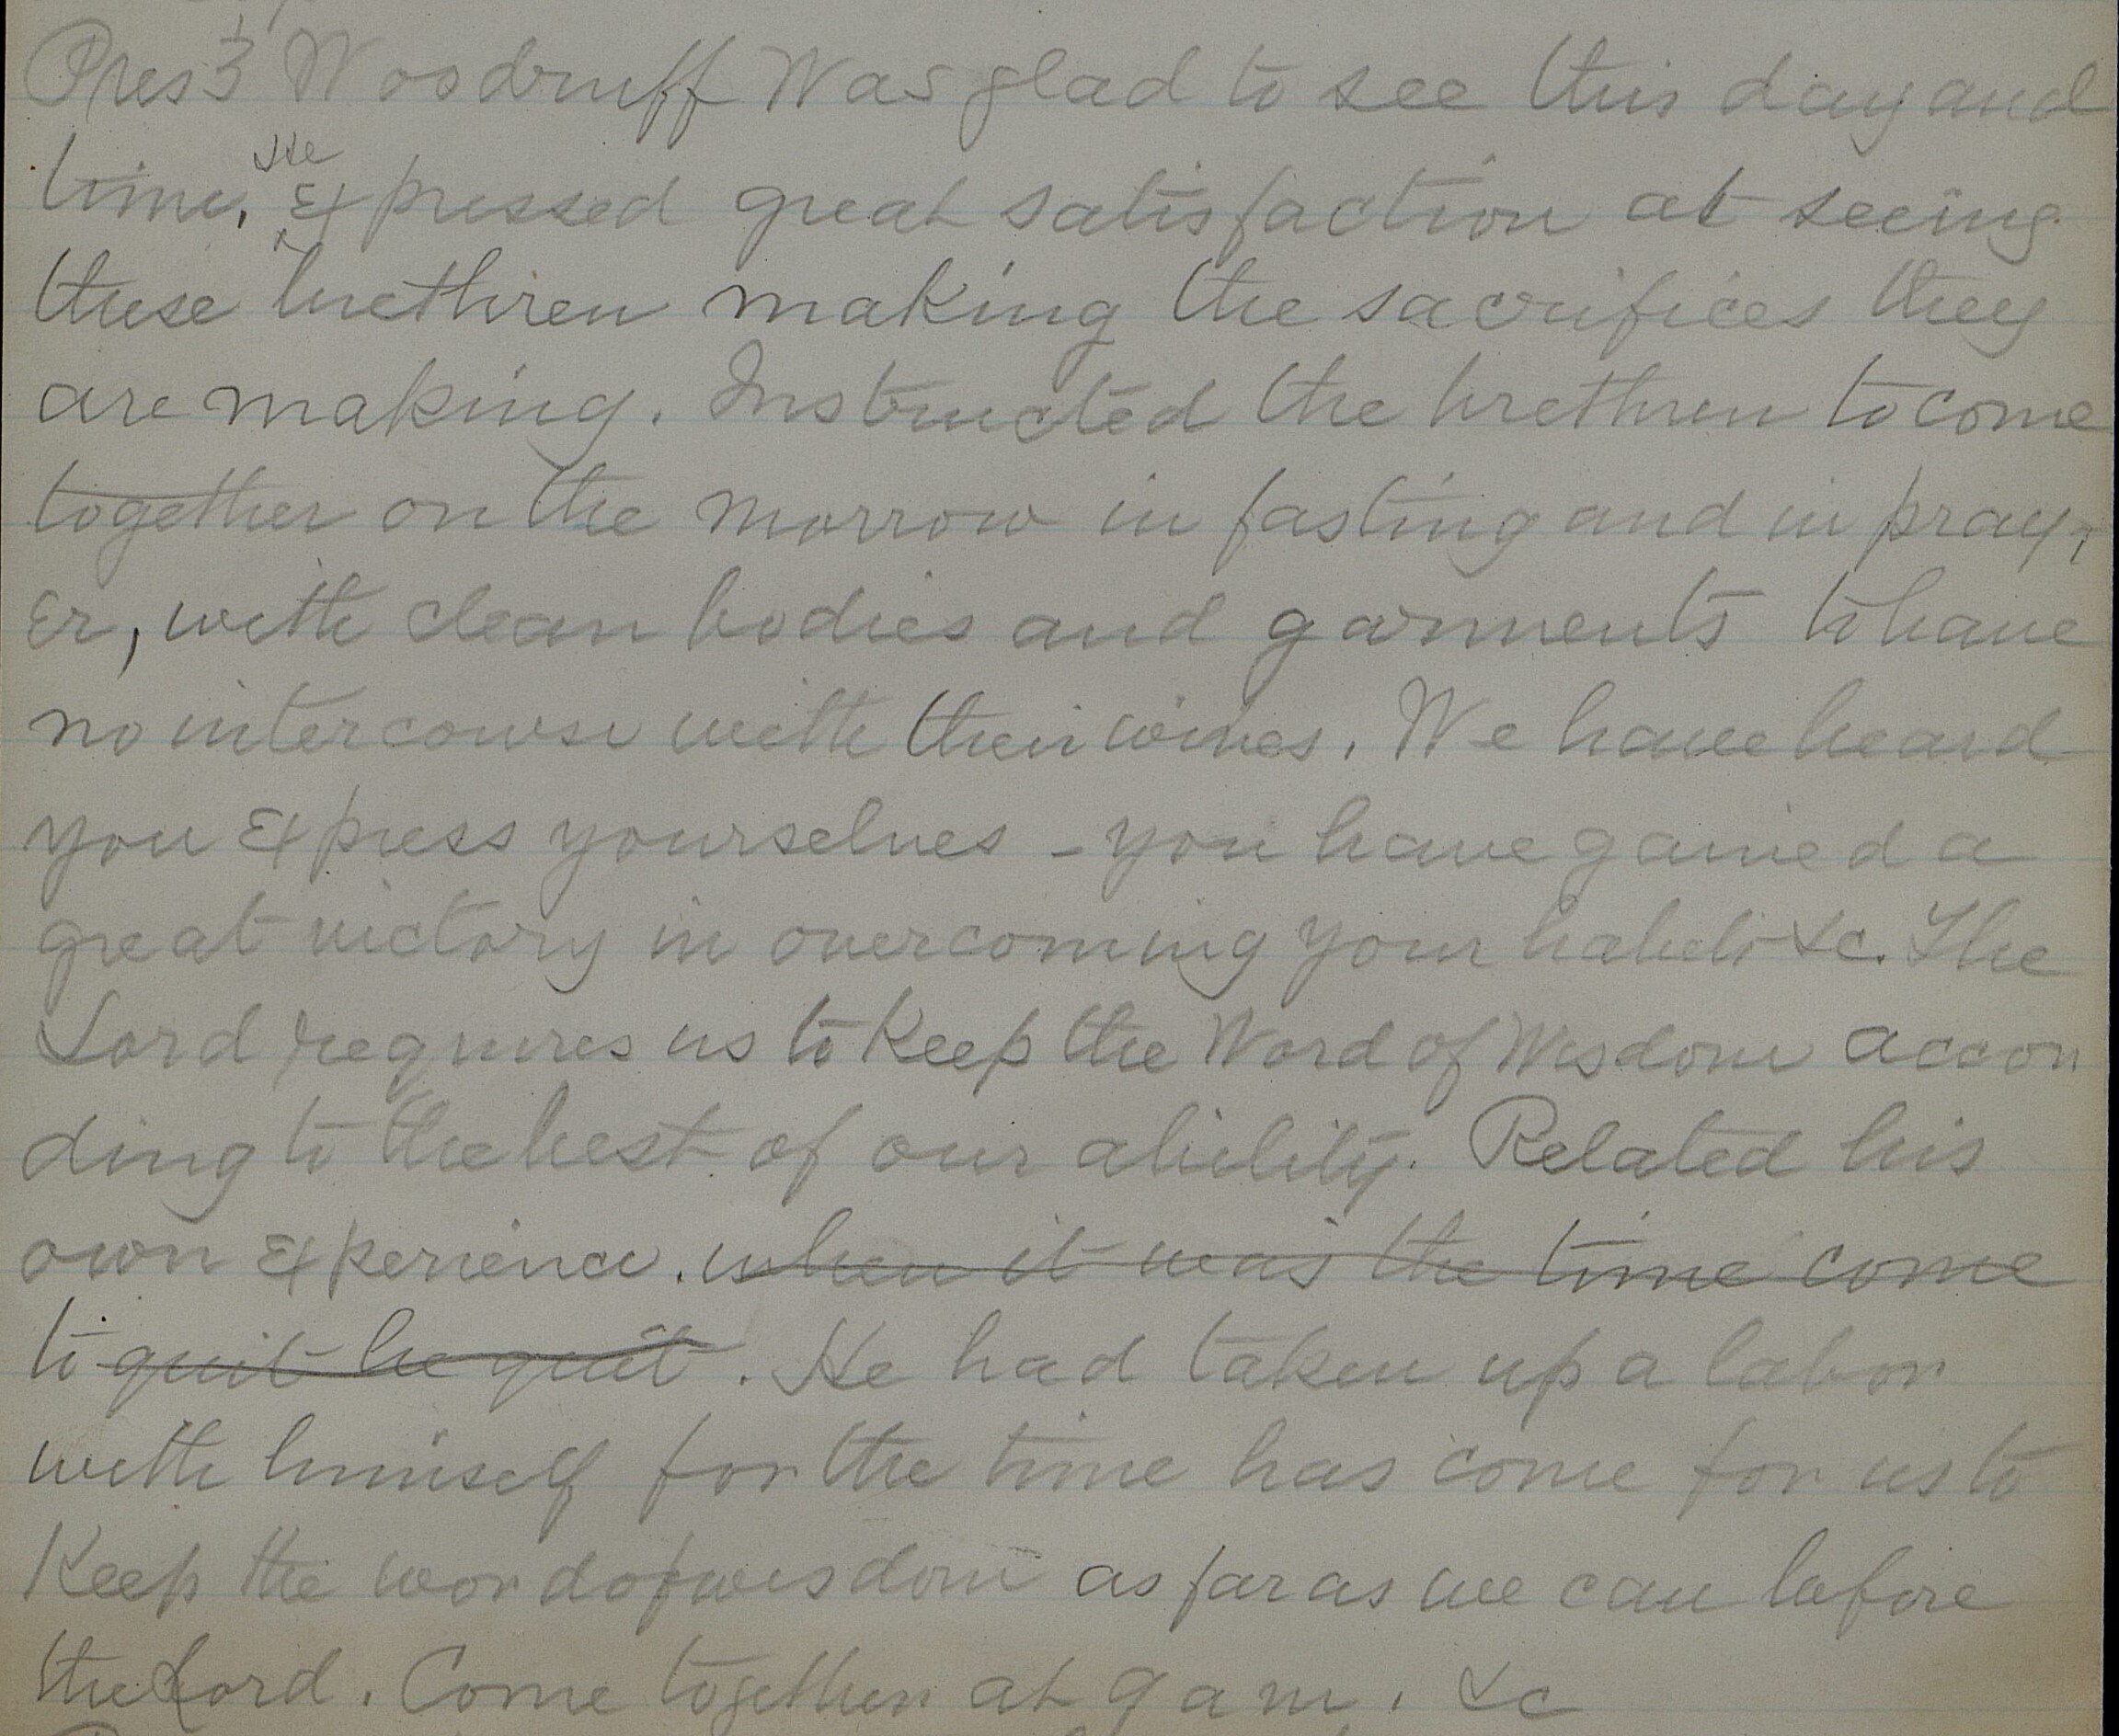 Prest Woodruff Was glad to see this day and
time. He Expressed great satisfaction at seeing
these brethren making the sacrifices they
are making. Instructed the brethren to come
together on the morrow in fasting and in pray-
er, with clean bodies and garments to have
no intercourse with their wives. We have heard
you Express yourselves - you have gained a
great victory in overcoming your habits &c. The
Lord requires us to Keep the Word of Wisdom accor
ding to the best of our ability. Related his
own Experience. when it was the time come
to quit he quit. He had taken up a labor
with himself for the time has come for us to
Keep the word of wisdom as far as we can before
the Lord. Come together at 9 am. &c